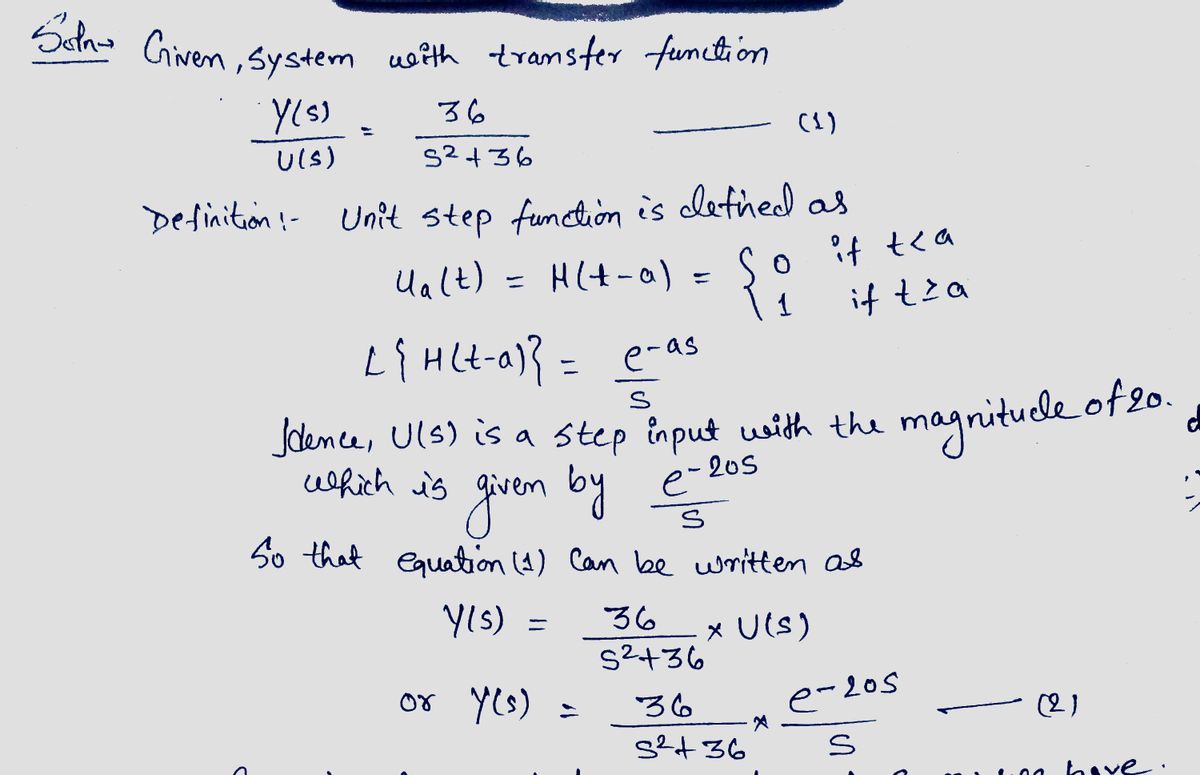 Soln→ Given, System with transfer function
Y(s)/U(s) = 36/(s²+36) —— (1)
Definition:- Unit step function is defined as
Ua(t) = H(t-a) = { 0 if t<a
1 if t≥a
L{H(t-a)} = e^-as/s
Hence, U(s) is a step input with the magnitude of 20.
which is given by e^-20s/s
So that equation (1) Can be written as
Y(s) = 36/(s²+36) × U(s)
or Y(s) = 36/(s²+36) × e^-20s/s —— (2)
have.